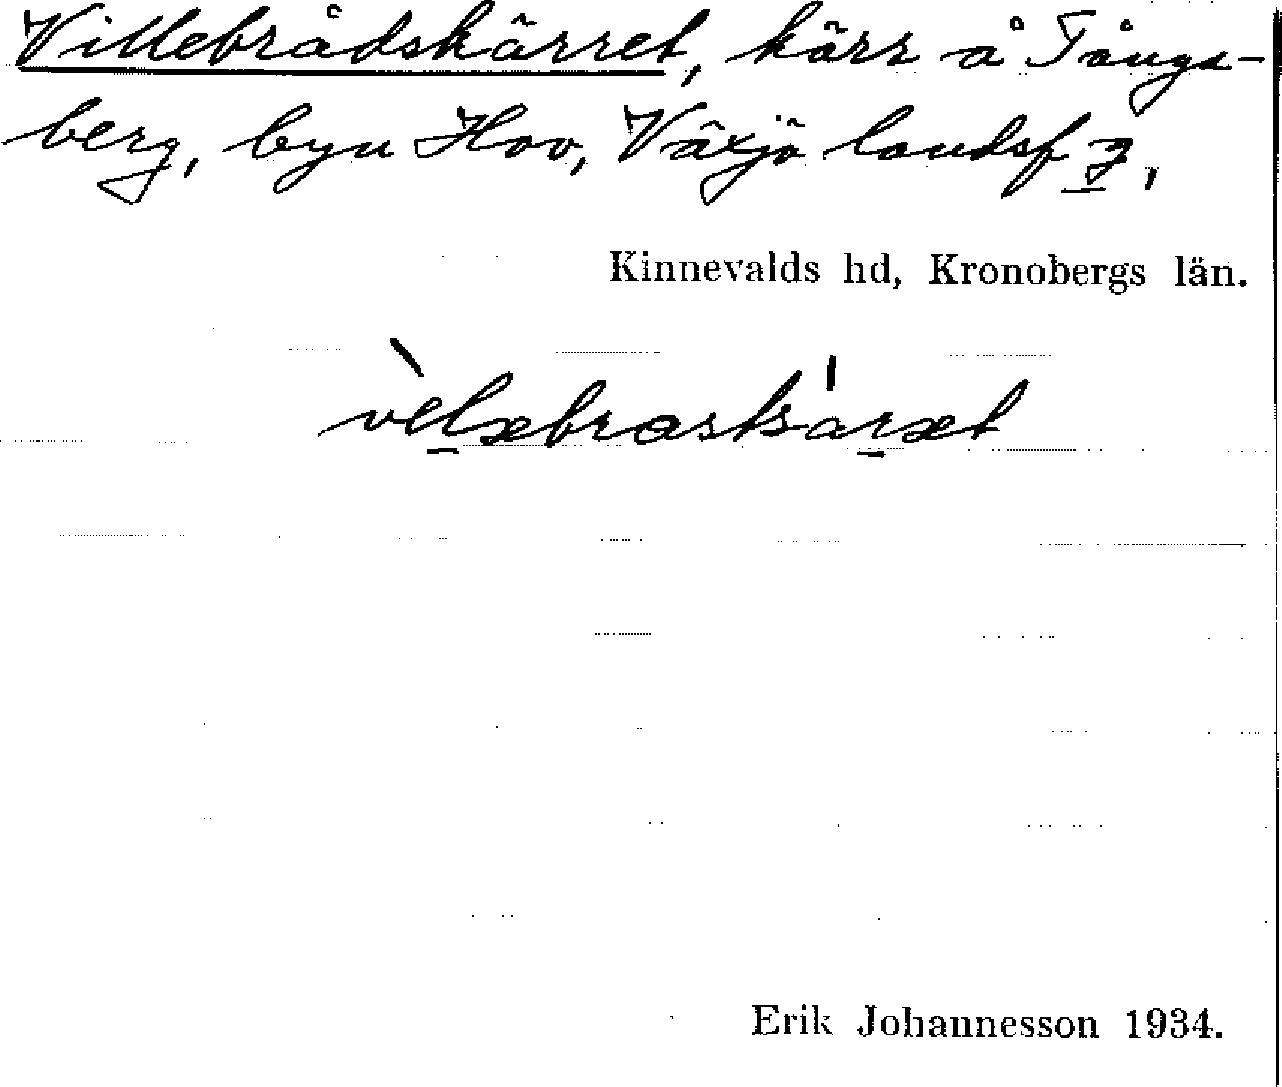 Villebrådskärret, kärr å Tångs-
berg, byn Hov, Växjö landsf
Kinnevalds hd, Kronobergs län.
Erik Johannesson 1934.